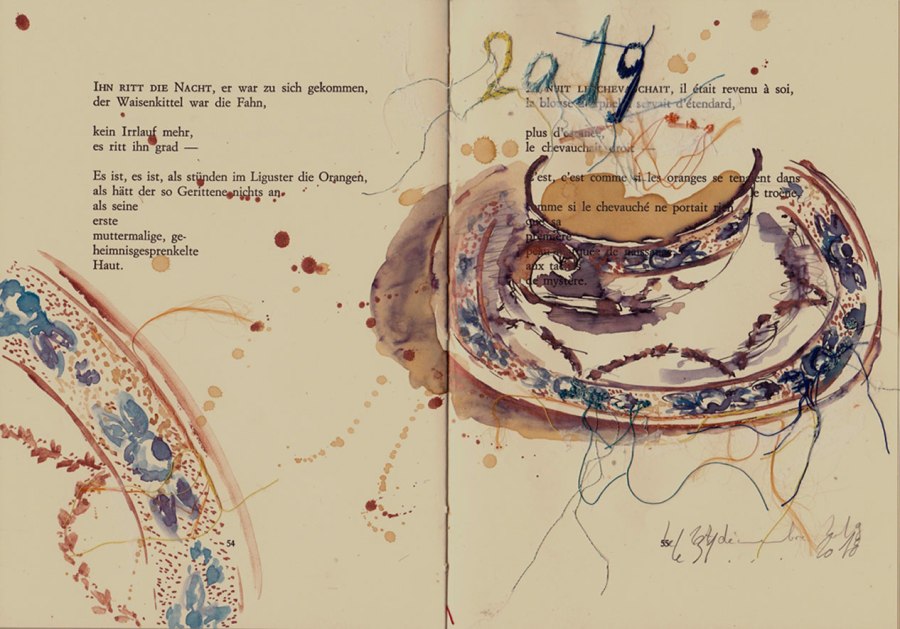 IHN RITT DIE NACHT, er war zu sich gekommen,
der Waisenkittel war die Fahn,
kein Irrlauf mehr,
es ritt ihn grad —
Es ist, es ist, als stünden im Liguster die Orangen,
als hätt der so Gerittene nichts an
als seine
erste
muttermalige, ge-
heimnisgesprenkelte
Haut.
54
2019
NUIT LE CHEVAUCHAIT, il était revenu à soi,
la blouse d'orphelin servait d'étendard,
plus d'
le chevauchait droit —
C'est, c'est comme si les oranges se tenaient dans
le troène,
comme si le chevauché ne portait rien
que sa
première
peau
aux taches
de mystère.
55
le 31 décembre 2019